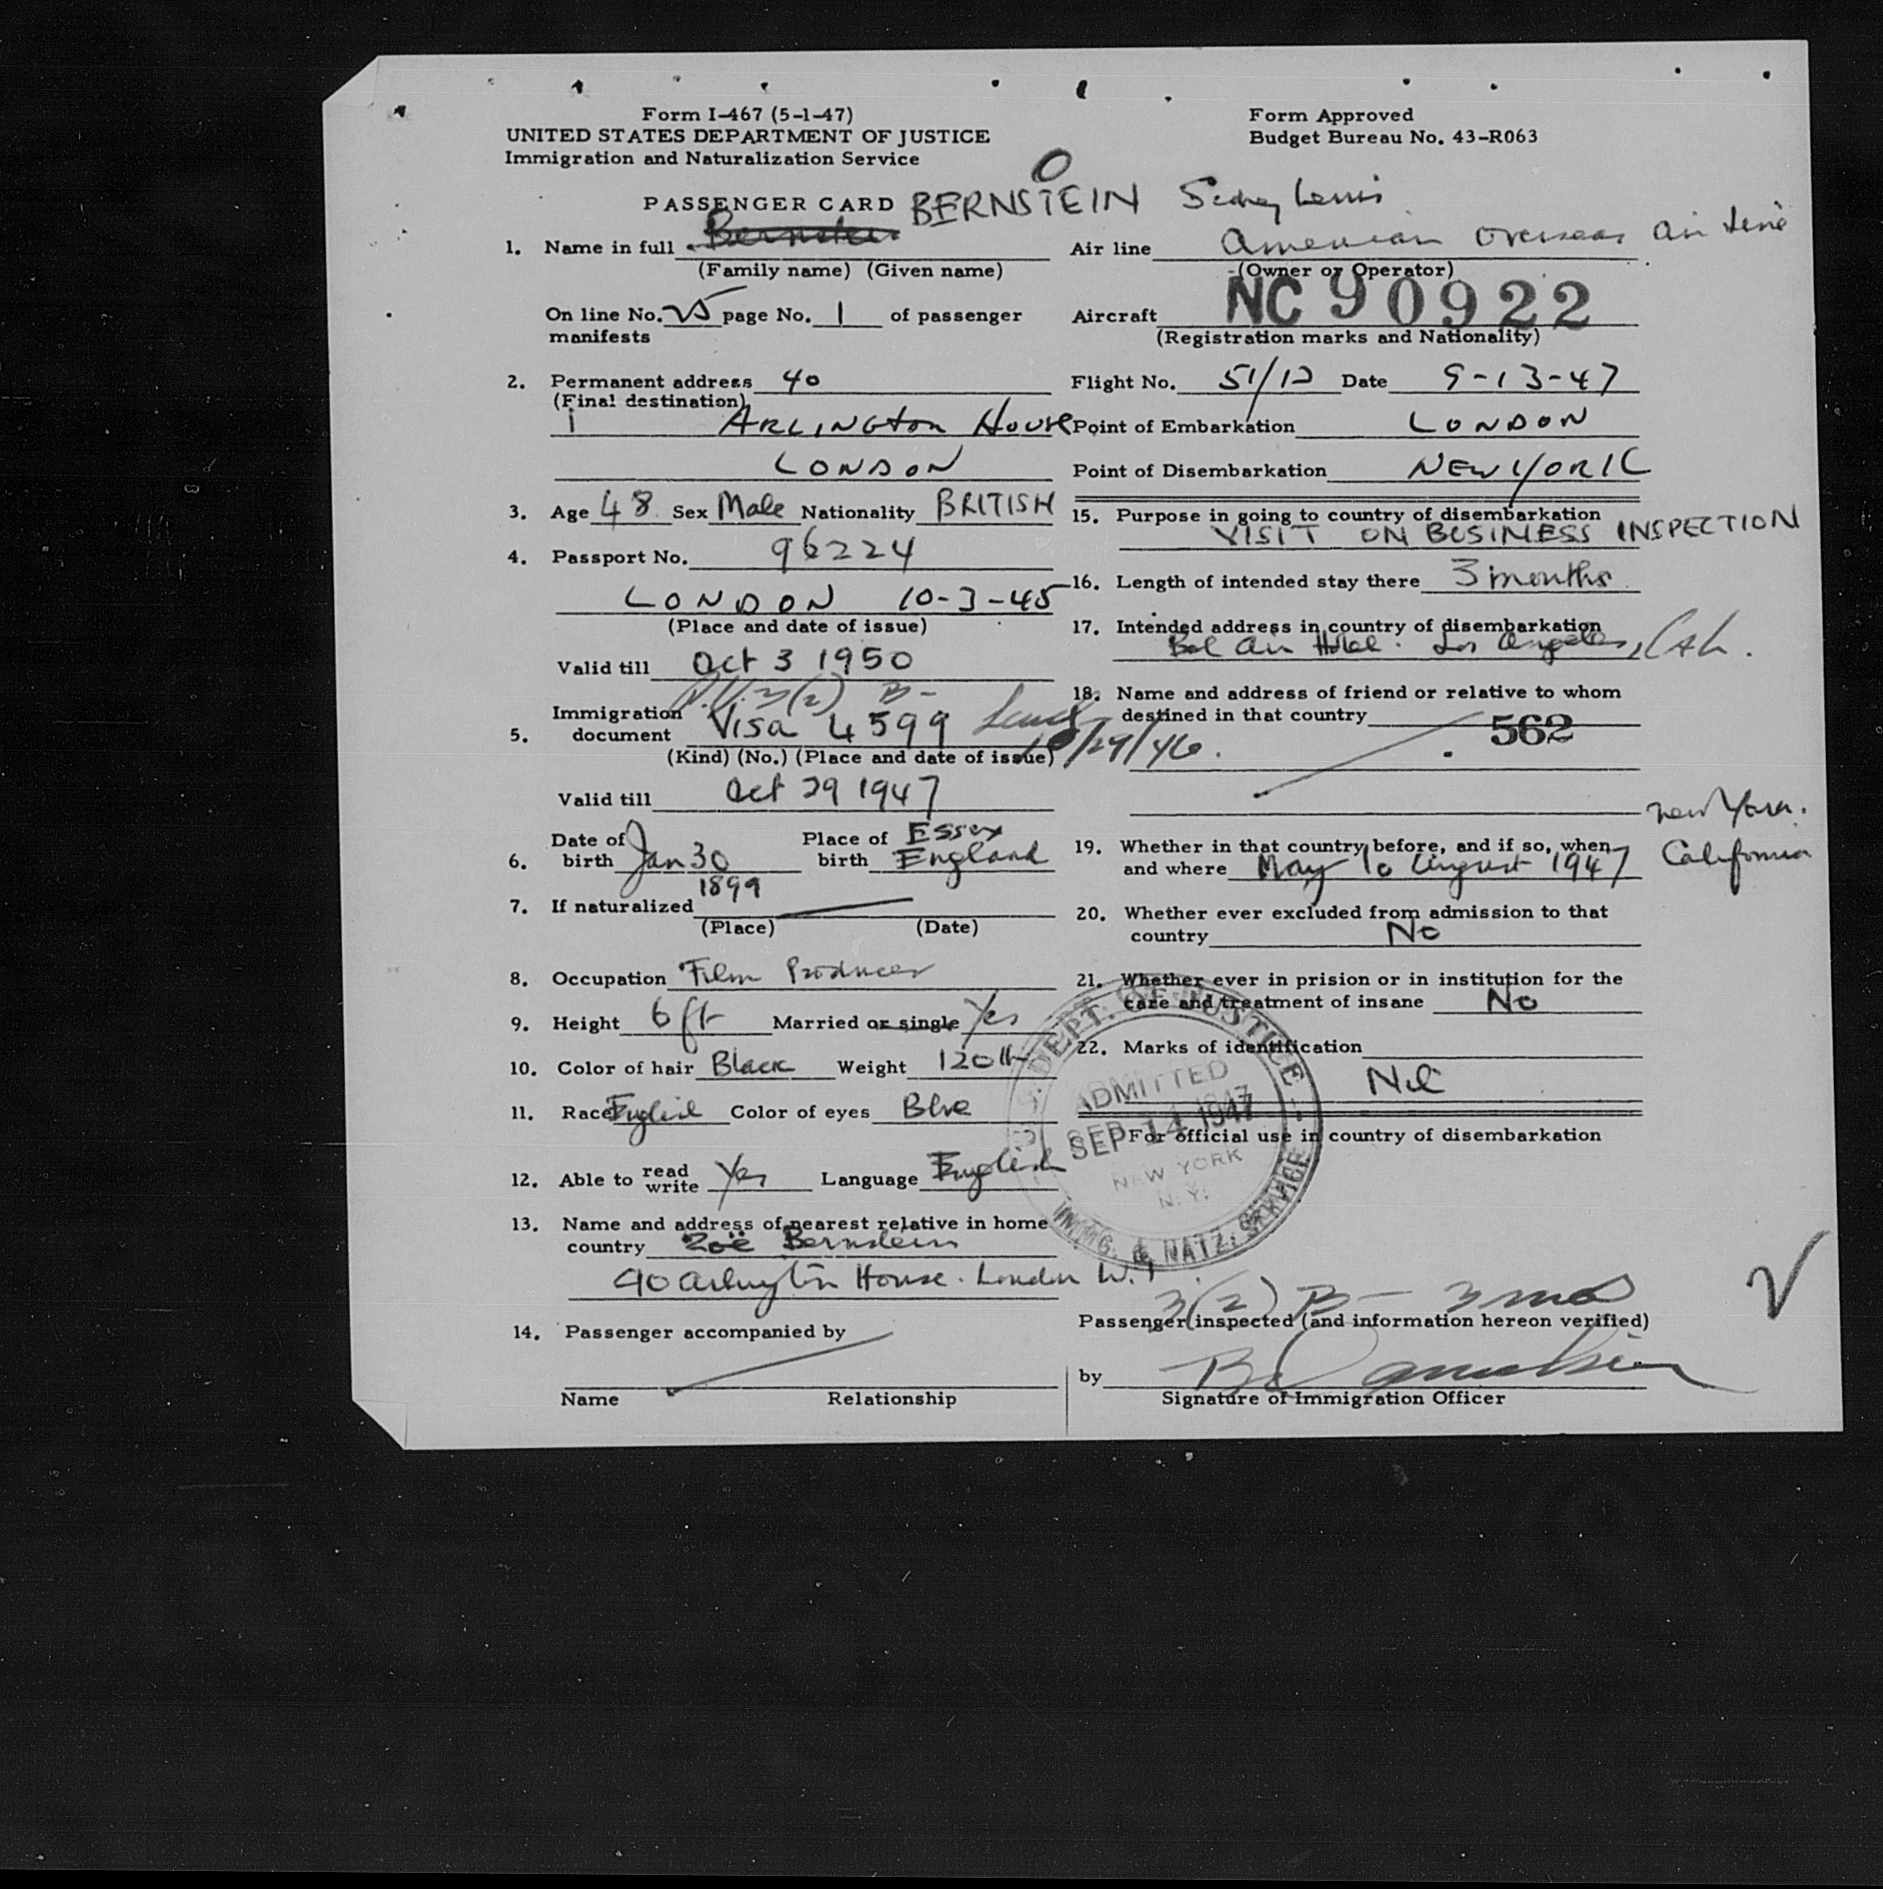 Form I-467 (5-1-47)
UNITED STATES DEPARTMENT OF JUSTICE
Immigration and Naturalization Service
Form Approved
Budget Bureau No. 43-R063
PASSENGER CARD BERNSTEIN Sidney Lewis
1. Name in full Bernstein
(Family name) (Given name)
On line No. 25 page No. 1 of passenger
manifests
2. Permanent address 40
(Final destination)
ARLINGton House
LONDON
3. Age 48 Sex Male Nationality BRITISH
4. Passport No. 96224
LONDON 10-3-45
(Place and date of issue)
Valid till Oct 3 1950
P.V. 3(2) B-
Immigration
5. document Visa 4599 Lond 10/29/46.
(Kind) (No.) (Place and date of issue)
Valid till Oct 29 1947
6. Date of birth Jan 30 1899 Place of birth Essex England
7. If naturalized
(Place) (Date)
8. Occupation Film Producer
9. Height 6 ft Married or single Yes
10. Color of hair Black Weight 120 lb
11. Race English Color of eyes Blue
12. Able to read write Yes Language English
13. Name and address of nearest relative in home
country Zoë Bernstein
40 Arlington House. London W.1
14. Passenger accompanied by
Name Relationship
Air line American Overseas Air Line
(Owner or Operator)
Aircraft NC 90922
(Registration marks and Nationality)
Flight No. 51/12 Date 9-13-47
Point of Embarkation LONDON
Point of Disembarkation NEW YORK
15. Purpose in going to country of disembarkation
VISIT ON BUSINESS INSPECTION
16. Length of intended stay there 3 months
17. Intended address in country of disembarkation
Bel Air Hotel. Los Angeles, Cal.
18. Name and address of friend or relative to whom
destined in that country
562
19. Whether in that country before, and if so, when
and where May to August 1947 New York. California
20. Whether ever excluded from admission to that
country No
21. Whether ever in prision or in institution for the
care and treatment of insane No
22. Marks of identification
Nil
For official use in country of disembarkation
DEPT. OF JUSTICE
ADMITTED
SEP 14 1947
NEW YORK
N.Y.
IMMG. & NATZ. SERVICE
3(2) B- 3 mos
Passenger inspected (and information hereon verified)
by
Signature of Immigration Officer